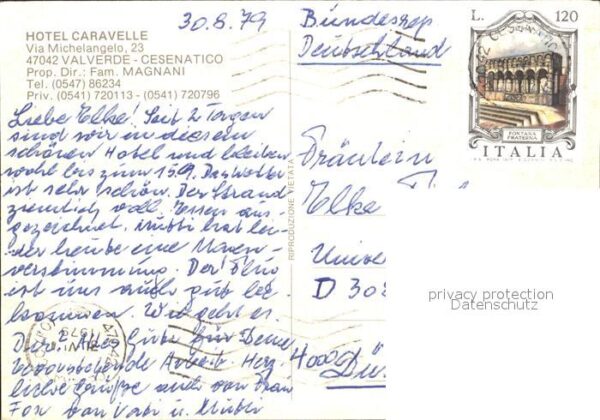 HOTEL CARAVELLE
Via Michelangelo, 23
47042 VALVERDE - CESENATICO
Prop. Dir.: Fam. MAGNANI
Tel. (0547) 86234
Priv. (0541) 720113 - (0541) 720796
30.8.79
Liebe Elke! Seit 2 Tagen
sind wir in diesem
schönen Hotel und bleiben
wohl bis zum 15.9. Das Wetter
ist sehr schön. Der Strand
ziemlich voll. Essen aus-
gezeichnet, Mutti hat lei-
der heute eine Magen-
verstimmung. Der Flug
ist uns auch gut be-
kommen. Wie geht es
Dir? Alles Gute für Deine
bevorstehende Arbeit. Herz-
liche Grüße auch von Frau
von Vati u. Mutti
RIPRODUZIONE VIETATA
Bundesrep
Deutschland
L. 120
FONTANA
FRATERNA
ITALIA
Fräulein
Elke
Unive
D 302
4000 Dü
privacy protection
Datenschutz